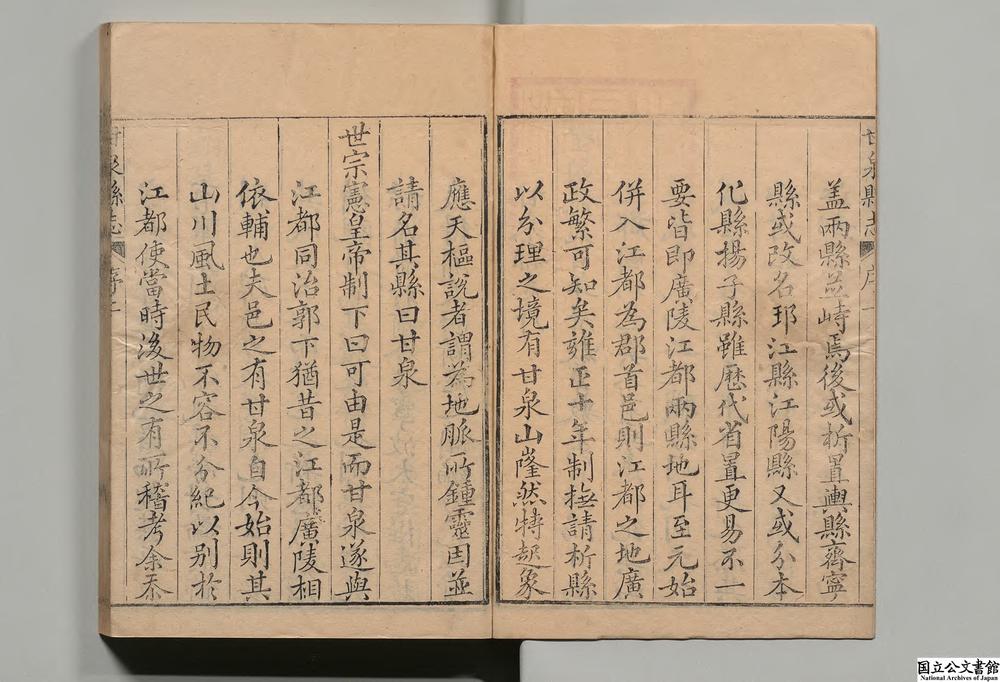 甘泉縣志 序 一
蓋兩縣並峙焉後或析置輿縣齊寧
縣或改名邗江縣江陽縣又或分本
化縣揚子縣雖歷代省置更易不一
要皆即廣陵江都兩縣地耳至元始
併入江都為郡首邑則江都之地廣
政繁可知矣雍正十年制撫請析縣
以分理之境有甘泉山窿然特起象
應天樞說者謂為地脈所鍾靈因並
請名其縣曰甘泉
世宗憲皇帝制下曰可由是而甘泉遂與
江都同治郭下猶昔之江都廣陵相
依輔也夫邑之有甘泉自今始則其
山川風土民物不容不分紀以別於
江都使當時後世之有所稽考余忝
甘泉縣志 序 二
国立公文書館
National Archives of Japan